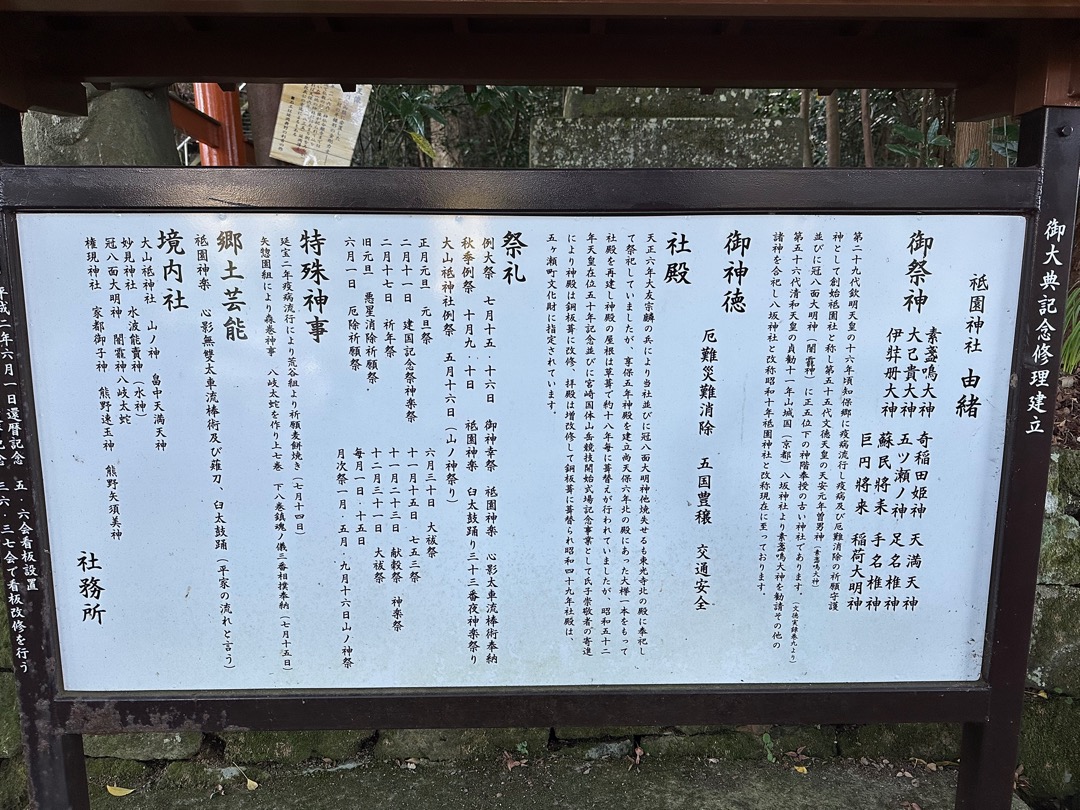 御大典記念修理建立
祇園神社 由緒
御祭神
素盞鳴大神 奇稲田姫神 天満天神
大己貴大神 五ツ瀬ノ神 足名椎神
伊弉册大神 蘇民將来 手名椎神
巨円將来 稲荷大明神
第二十九代欽明天皇の十六年頃知保郷に疫病流行し疫病及び厄難消除の祈願守護
神として創始祗園社と称し第五十五代文徳天皇の天安元年曽男神(素盞鳴大神)
並びに冠八面大明神(闇龗神)に正五位下の神階奉授の古い神社であります。(文徳実録巻九より)
第五十六代清和天皇の貞勧十一年山城国(京都)八坂神社より素盞鳴大神を勧請その他の
諸神を合祀し八坂神社と改称昭和十年祗園神社と改称現在に至っております。
御神徳
厄難災難消除 五国豊穣 交通安全
社殿
天正六年大友宗麟の兵により当社並びに冠八面大明神他焼失せるも東光寺北の殿に奉祀し
て祭祀していましたが、享保五年神殿を建立尚天保六年北の殿にあった大欅一本をもって
社殿を再建し神殿の屋根は草葺で約十八年毎に葺替えが行われていましたが、昭和五十二
年天皇在位五十年記念並びに宮崎国体山岳競技開始式場記念事業として氏子崇敬者の寄進
により神殿は銅板葺に改修、拝殿は増改修して銅板葺に葺替られ昭和四十九年社殿は、
五ヶ瀬町文化財に指定されています。
祭礼
例大祭 七月十五・十六日 御神幸祭 祗園神楽 心影太車流棒術奉納
秋季例祭 十月九・十日 祗園神楽 臼太鼓踊り三十三番夜神楽祭り
大山祗神社例祭 五月十六日(山ノ神祭り)
正月元旦 元旦祭 六月三十日 大祓祭
二月十一日 建国記念祭神楽祭 十一月十五日 七五三祭
二月十七日 祈年祭 十一月二十三日 献穀祭 神楽祭
旧元旦 悪星消除祈願祭 十二月三十一日 大祓祭
六月一日 厄除祈願祭 毎月一日・十五日
月次祭一月・五月・九月十六日山ノ神祭
特殊神事
延宝二年疫病流行により荒谷組より祈願麦餅焼き(七月十四日)
矢惣園組により森巻神事 八岐太蛇を作り上七巻 下八巻鎮魂ノ儀三番相撲奉納(七月十五日)
郷土芸能
祗園神楽 心影無雙太車流棒術及び薙刀、臼太鼓踊(平家の流れと言う)
境内社
大山祗神社 山ノ神 畠中天満天神
妙見神社 水波能貴神(水神)
冠八面大明神 闇龗神八岐太蛇
権現神社 家都御子神 熊野速玉神 熊野矢須美神
社務所
平成二年六月一日還暦記念 五・六会看板設置
三六・三七会で看板改修を行う